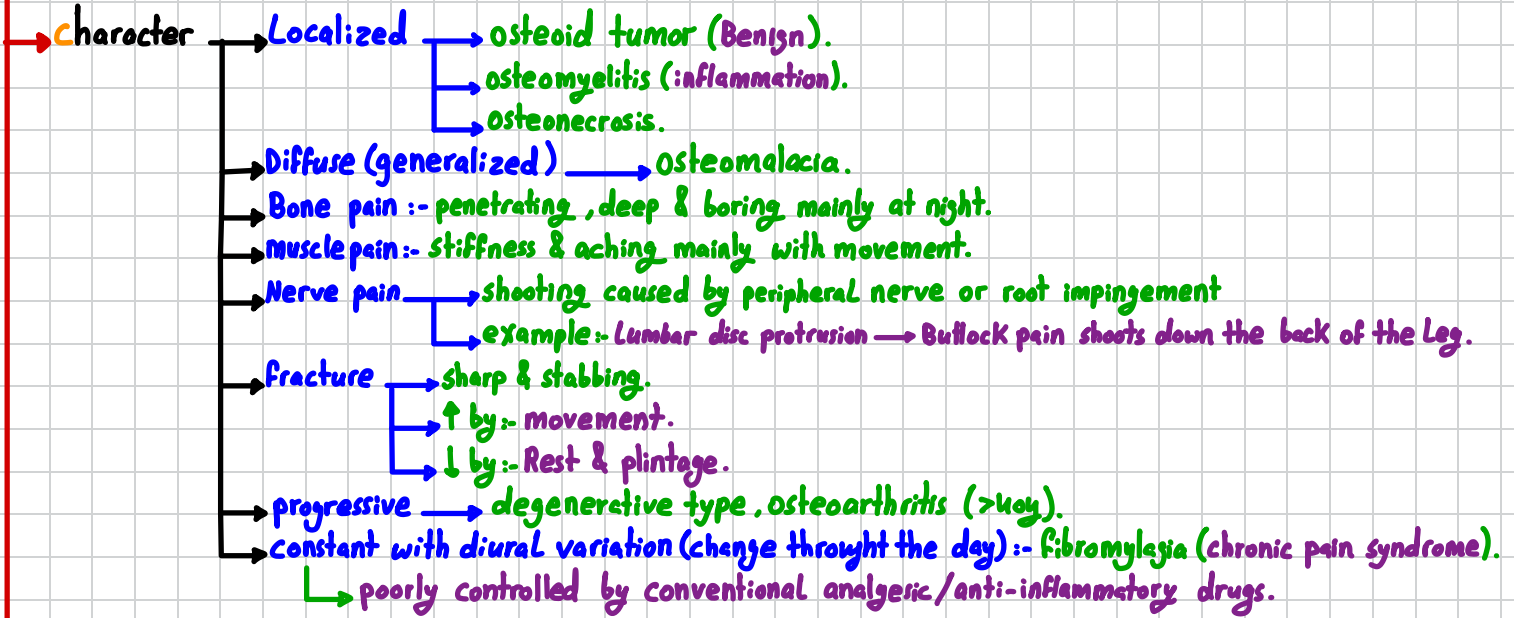 character Localized osteoid tumor (Benign).
osteomyelitis (inflammation).
osteonecrosis.
Diffuse (generalized) osteomalacia.
Bone pain :- penetrating, deep & boring mainly at night.
muscle pain :- stiffness & aching mainly with movement.
Nerve pain shooting caused by peripheral nerve or root impingement
example :- Lumbar disc protrusion → Buttock pain shoots down the back of the Leg.
fracture sharp & stabbing.
↑ by :- movement.
↓ by :- Rest & plintage.
progressive degenerative type, osteoarthritis (>40y).
constant with diural variation (change throught the day) :- fibromylagia (chronic pain syndrome).
poorly controlled by conventional analgesic/anti-inflammatory drugs.